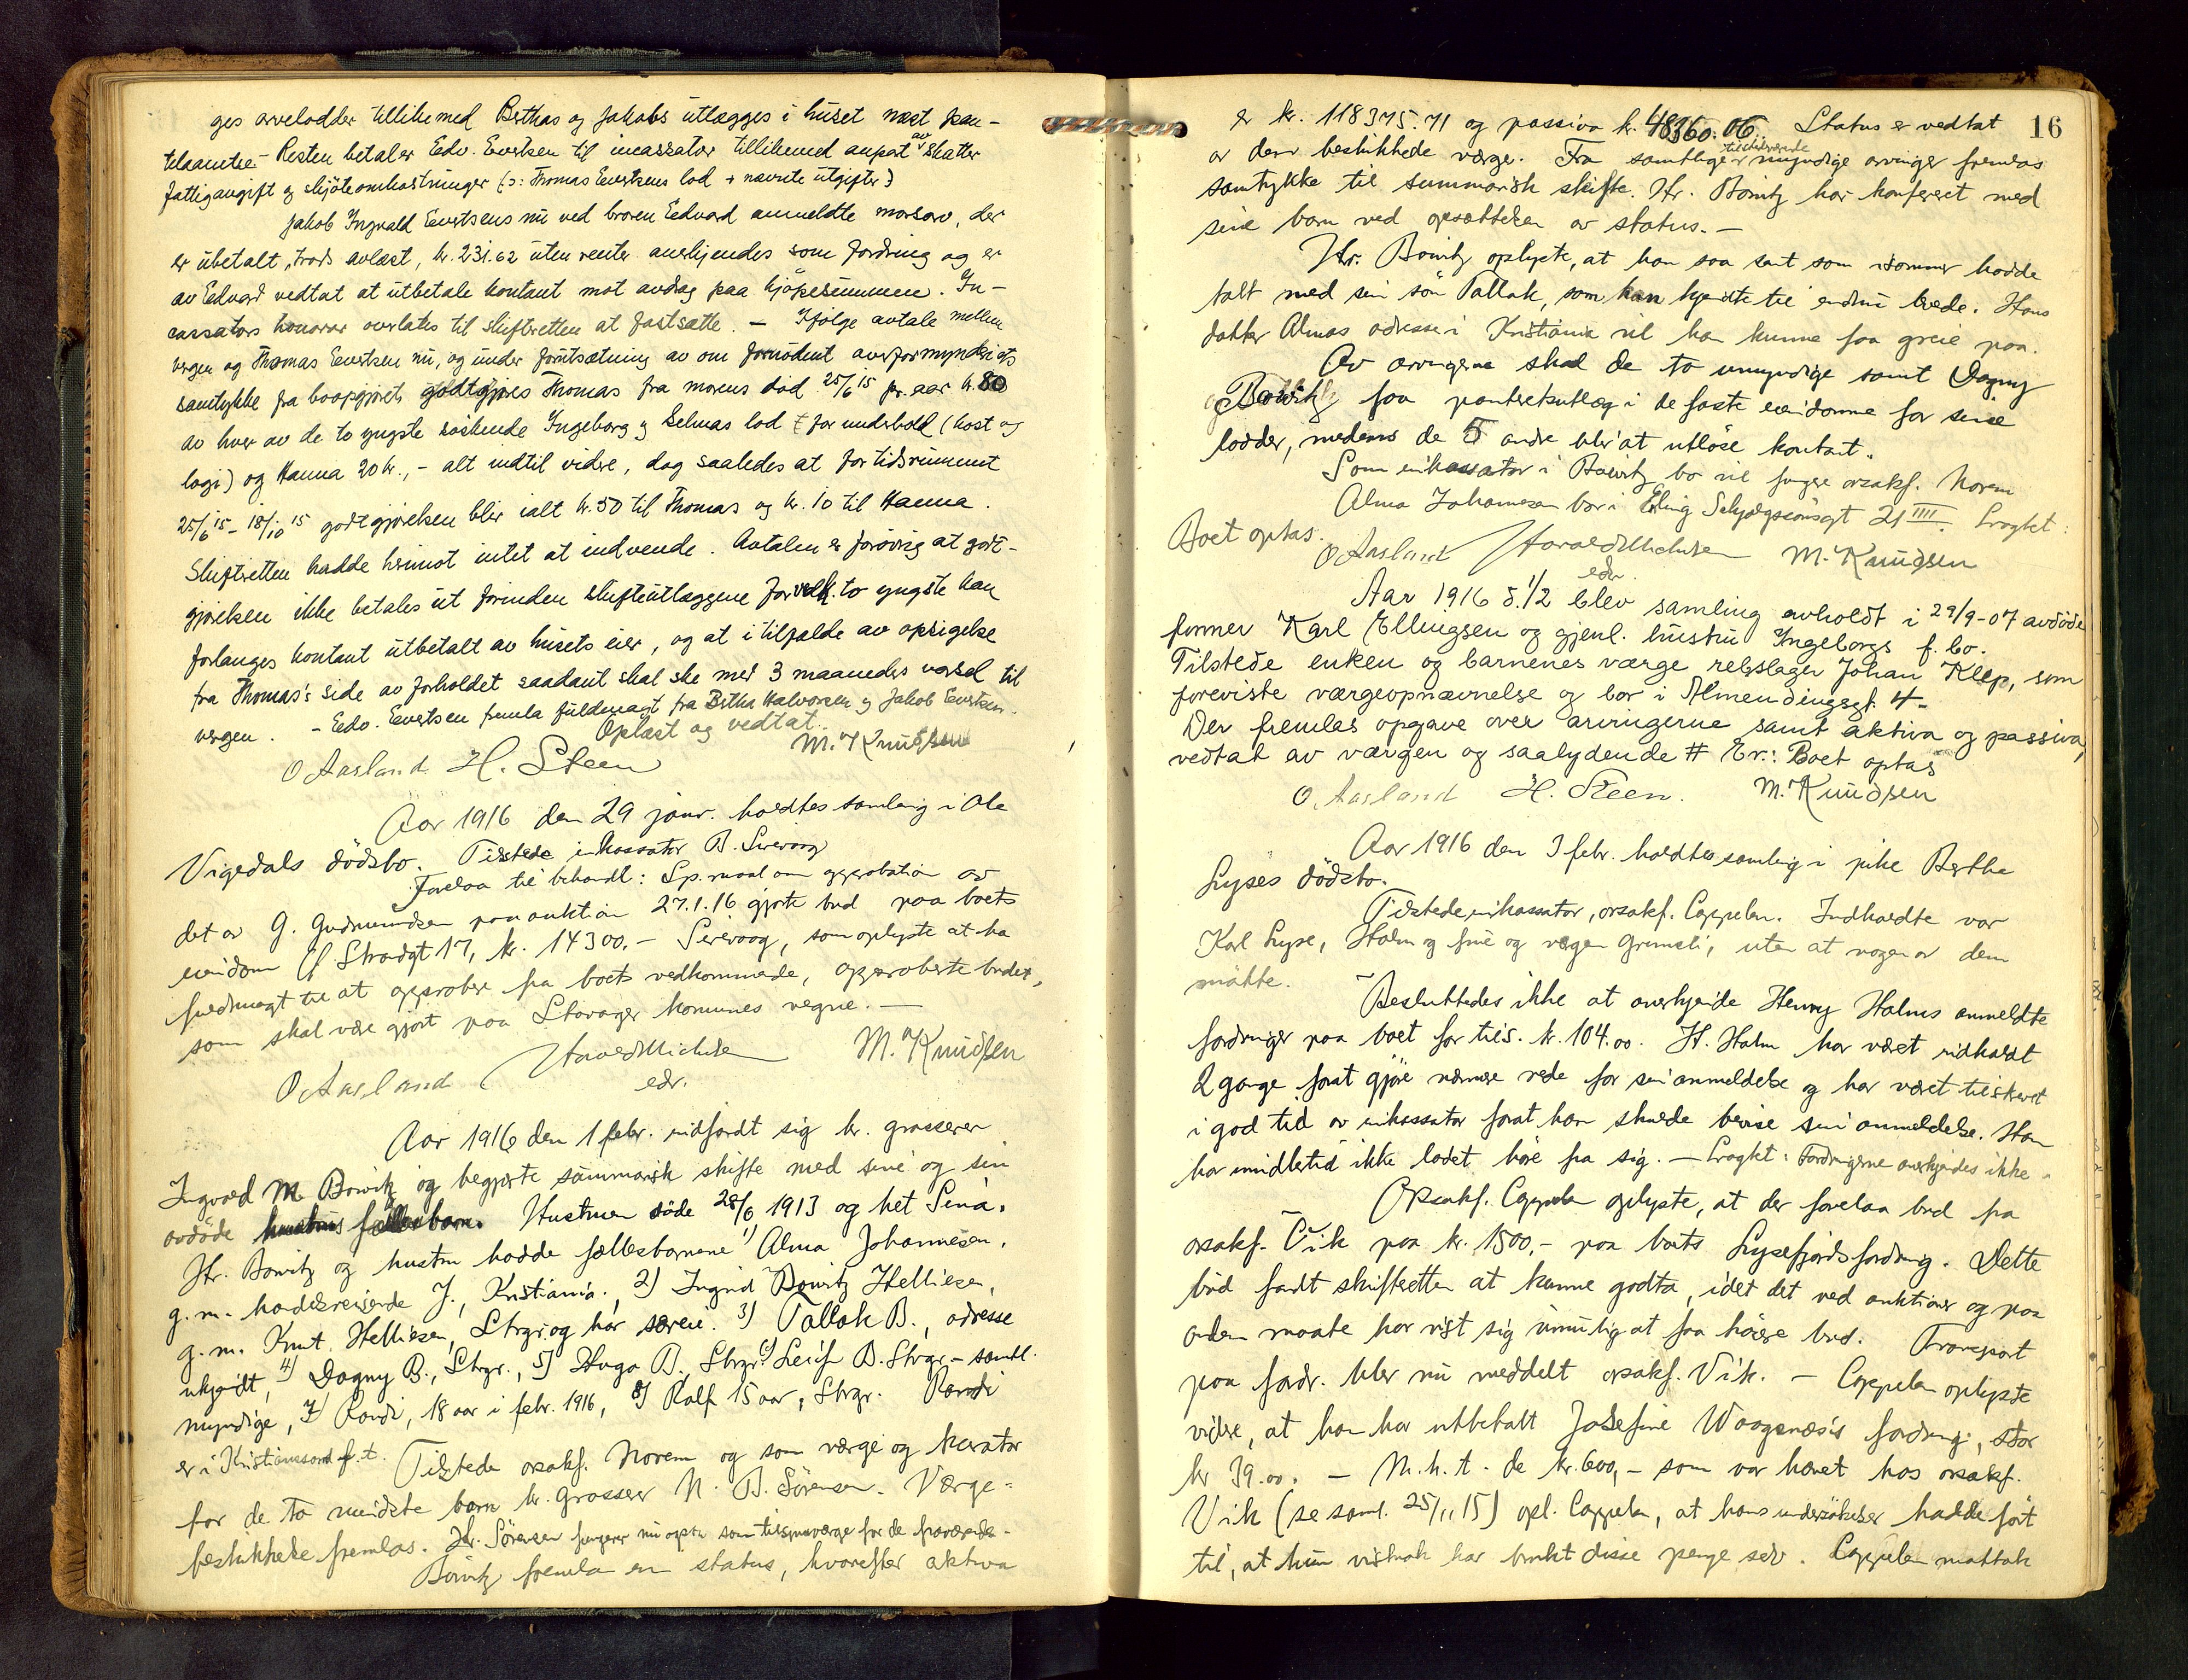 ges arvelodder tillikemed Berthas og Jakobs utlægges i huset næst pan-
telaantie- Resten betaler Edv. Evertsen til incassator tillikemed anpat av skatter
fattigavgift og skjöteomkostninger (ɔ: Thomas Evertsens lod + nævnte utgifter)
Jakob Ingvald Evertsens nu ved broren Edvard anmeldte morsarv, der
er ubetalt, trods avlæst, kr. 231.62 uten renter anerkjendes som fordring og er
av Edvard vedtat at utbetale kontant mot avdrag paa kjöpesummen. In-
cassators honorar overlates til skifteretten at fastsætte. - Ifölge avtale mellem
vergen og Thomas Evertsen nu, og under forutsætning av om fornødent overformynderiets
samtykke fra boopgjöret, godtgjöres Thomas fra morens död 25/6 15 pr. aar kr. 80
av hver av de to yngste söskende Ingeborg og Selmas lod for underhold (kost og
logi) og Hanna 20 kr., - alt indtil videre, dog saaledes at for tidsrummet
25/6 15 - 18/10 15 godtgjörelsen blir ialt kr. 50 til Thomas og kr. 10 til Hanna.
Skifteretten hadde herimot intet at indvende. Avtalen er forövrig at godt-
gjörelsen ikke betales ut forinden skifteutlæggene for vedk. to yngste kan
forlanges kontant utbetalt av husets eier, og at i tilfælde av opsigelse
fra Thomas's side av forholdet saadant skal ske med 3 maaneders varsel til
vergen. - Edv. Evertsen fremla fuldmagt fra Bertha Halvorsen og Jakob Evertsen.
Oplæst og vedtat.
O Aasland H. Steen M. Knudsen
Aar 1916 den 29 janr. holdtes samling i Ole
Vigedals dödsbo. Tilstede inkassator B. Sirevaag
Forelaa til behandl: Spmaal om approbation av
det av G. Gudmundsen paa auktion 27.1.16 gjorte bud paa boets
eiendom Strandgt 17, kr. 14300.- Sirevaag, som oplyste at ha
fuldmagt til at approbere fra boets vedkommende, approberte budet,
som skal være gjort paa Stavanger kommunes vegne. -
O Aasland Harald Michelsen M. Knudsen
edr.
Aar 1916 den 1 febr. indfandt sig hr. grosserer
Ingvald M. Bowitz og begjærte summarisk skifte med sine og sin
avdöde hustrus fællesbarn. Hustruen döde 28/6 1913 og het Sina.
Hr. Bowitz og hustru hadde fællesbarnene 1) Alma Johannesen,
g.m. handelsreisende J., Kristiania., 2) Ingrid Bowitz Helliesen,
g.m. Knut Helliesen, Stvgr. og har særeie. 3) Tallak B., adresse
ukjendt, 4) Dagny B., Stvgr., 5) Hugo B, Stvgr. 6) Leif B. Stvgr. - samtl.
myndige, 7) Randi, 18 aar i febr. 1916, 8) Ralf 15 aar, Stvgr. Randi
er i Kristianssand f.t. Tilstede orsakf. Norem og som værge og kurator
for de to mindste barn hr. grosserer N. B. Sörensen. Værge-
beskikkelse fremlas. Hr. Sörensen fungerer nu ogsaa som tilsynsværge for de fraværende.-
Bowitz fremla en status, hvorefter aktiva
16
er kr. 118375.71 og passiva kr. 48360.06. Status er vedtat
av den beskikkede værge. Fra samtlige tilstedeværende myndige arvinger fremlas
samtykke til summarisk skifte. Hr. Bowitz har konferert med
sine barn ved opsættelsen av status. -
Hr. Bowitz oplyste, at han saa sent som isommer hadde
talt med sin sön Tallak, som han kjendte til endnu levde. Hans
datter Almas adresse i Kristiania vil han kunne faa greie paa.
Av arvingerne skal de to umyndige samt Dagny
Bowitz faa panteretsutlæg i de faste eiendomme for sine
lodder, medens de 5 andre blir at utlöse kontant.
Som inkassator i Bowitz bo vil fungere orsakf. Norem
Alma Johannesen bor i Eling Schjolgseionsgt 21 IIII. Avsagt:
Boet optas.
O Aasland Harald Michelsen M. Knudsen
edr.
Aar 1916 d. 1/2 blev samling avholdt i 29/9-07 avdöde
former Karl Ellingsen og gjenl. hustru Ingeborgs f. bo.
Tilstede enken og barnenes værge rebslager Johan Klep, som
foreviste værgeopnævnelse og bor i Almendingsgt. 4-
Der fremlas opgave over arvingerne samt aktiva og passiva,
vedtat av værgen og saalydende # Er.: Boet optas
O. Aasland H. Steen. M. Knudsen
Aar 1916 den 3 febr. holdtes samling i pike Berthe
Lyses dödsbo.
Tilstede inkassator, orsakf. Cappelen. Indkaldte var
Karl Lyse, Halm og frue og vergen Grimsli, uten at nogen av dem
mötte.
Besluttedes ikke at anerkjende Henry Halms anmeldte
fordringer paa boet for tils. kr. 104.00. H. Halm har været indkaldt
2 gange forat gjöre nærmere rede for sin anmeldelse og har været tilskrevet
i god tid av inkassator forat han skulde bevise sin anmeldelse. Han
har imidlertid ikke ladet höre fra sig. - Avsagt: Fordringerne anerkjendes ikke.
Orsakf. Cappelen oplyste, at der forelaa bud fra
orsakf. Vik paa kr. 1500,- paa boets Lysefjordsfordring. Dette
bud fandt skifteretten at kunne godta, idet det ved auktioner og paa
anden maate har vist sig umulig at faa höiere bud. Transport
paa fordr. blev nu meddelt orsakf. Vik. - Cappelen oplyste
videre, at han har utbetalt Josefine Waagenæs's fordring, stor
kr 39.00. - M.h.t. de kr. 600,- som var hævet hos orsakf.
Vik (se saml. 25/11 15) opl. Cappelen, at hans undersökelser hadde fört
til, at hun vistnok har brukt disse penge selv. Cappelen mottok